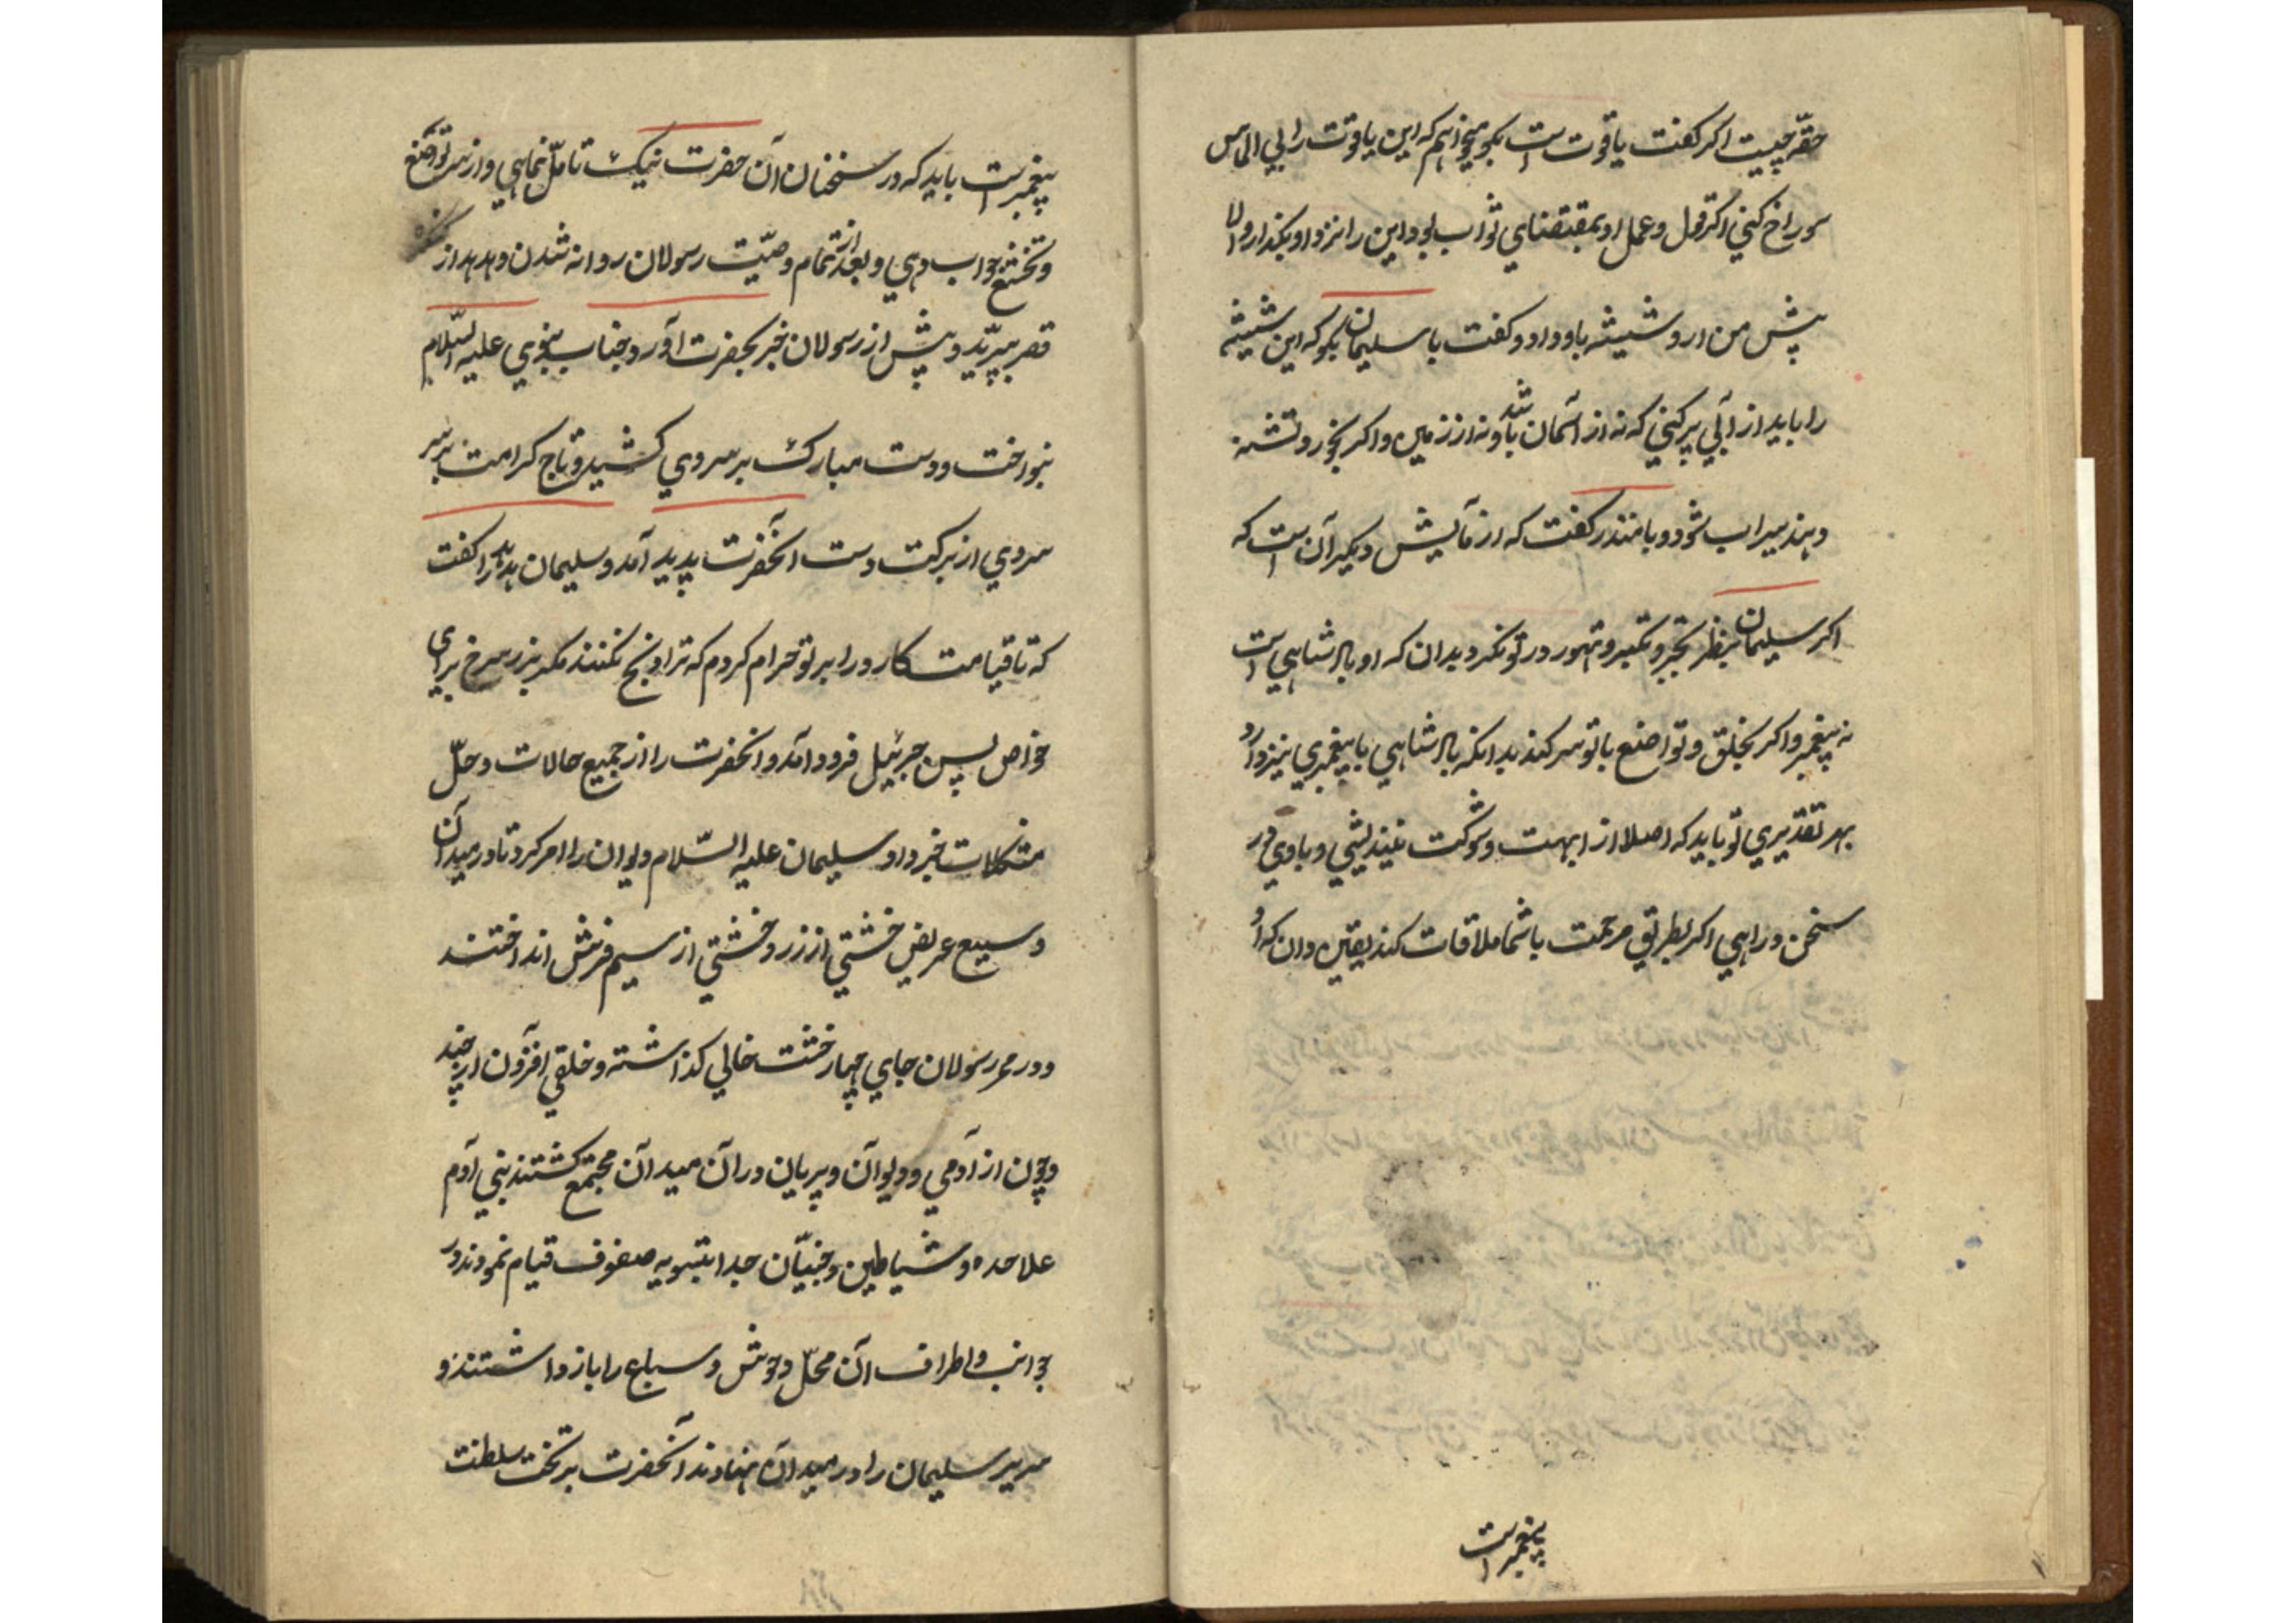 حقّه چیست اکر کفت یاقوت است بکو میخواهم که این یاقوت را بی الماس
سوراخ کنی اکر قول و عمل او بمقتضای ثواب بود این را نزد او بکذار والا
پیش من ار و شیشه باو داد و کفت با سلیمان بکو که این شیشه
را باید از آبی پر کنی که نه از آسمان باشد و نه از زمین و اکر بخورد تشنه
دهند سیراب شود و با منذر کفت که ازمایش دیکر آن است که
اکر سلیمان بنظر تجبر و تکبر و تهور در تو نکرد بدان که او پادشاهی است
نه پیغمبر و اکر بخلق و تواضع با تو سر کند بدانکه پادشاهی با پیغمبری نیز دارد
بهر تقدیری تو باید که اصلا از ابهت و شوکت نیندیشی و با وی در
سخن درایی اکر بطریق مرحمت با شما ملاقات کند یقین دان که او
پیغمبر است
پیغمبر است باید که در سخنان آن حضرت نیک تامّل نمایی و از سر تواضع
و تخشع جواب دهی و بعد از اتمام وصیّت رسولان روانه شدن و هدهد از
قصر بپرّید و پیش از رسولان خبر بحضرت آورد و جناب نبوی علیه السّلام
بنواخت و دست مبارک بر سر وی کشید و تاج کرامت بر سر
سر وی از برکت دست آنحضرت پدید آمد و سلیمان هدهد را کفت
که تا قیامت کارد را بر تو حرام کردم که ترا ذبح نکنند مکر بزر سرخ برای
خواص پس جبرئیل فرود آمد و انحضرت را از جمیع حالات و حلّ
مشکلات خبر داد و سلیمان علیه السّلام دیوان را امر کرد تا در میدان
وسیع عریض خشتی از زر و خشتی از سیم فرش انداختند
و در ممر رسولان جای چهار خشت خالی کذاشته و خلقی افزون از چند
و چون از آدمی و دیوان و پریان در آن میدان مجتمع کشتند بنی آدم
علاحده و شیاطین و جنیّان جدا بتسویه صفوف قیام نمودند و در
جوانب و اطراف آن محلّ وحوش و سباع را باز داشتند و
سریر سلیمان را در میدان نهادند آنحضرت بر تخت سلطنت